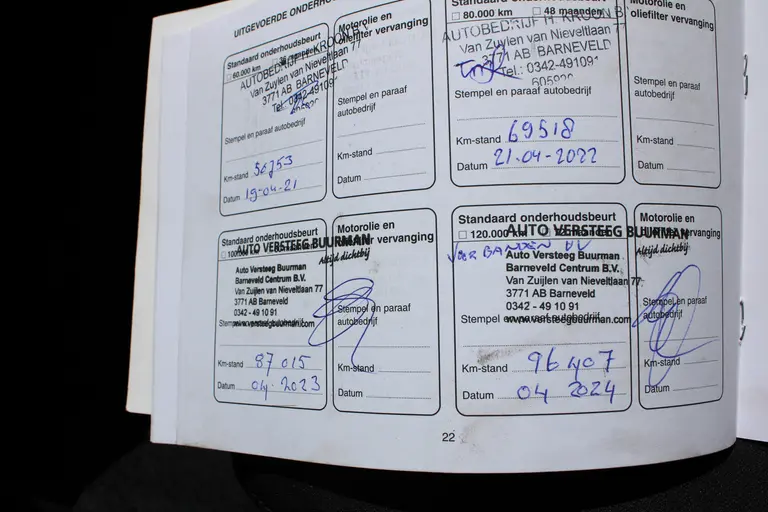 UITGEVOERDE ONDERHO
Standaard onderhoudsbeurt
60.000 km
AUTOBEDRIJF H. KROON B.V.
Van Zuylen van Nieveltlaan 77
3771 AB BARNEVELD
Tel.: 0342-491091
605920
Stempel en paraaf autobedrijf
Km-stand 50753
Datum 19-04-21
Motorolie en
oliefilter vervanging
Stempel en paraaf
autobedrijf
Km-stand
Datum
Standaard onderhoudsbeurt
80.000 km 48 maanden
AUTOBEDRIJF H. KROON B.
Van Zuylen van Nieveltlaan 77
3771 AB BARNEVELD
Tel.: 0342-491091
605920
Stempel en paraaf autobedrijf
Km-stand 69518
Datum 21-04-2022
Motorolie en
oliefilter vervanging
Stempel en paraaf
autobedrijf
Km-stand
Datum
Standaard onderhoudsbeurt
100.000 km
AUTO VERSTEEG BUURMAN
Altijd dichtbij
Auto Versteeg Buurman
Barneveld Centrum B.V.
Van Zuijlen van Nieveltlaan 77
3771 AB Barneveld
0342 - 49 10 91
www.versteegbuurman.com
Km-stand 87015
Datum 04 2023
Motorolie en
oliefilter vervanging
Stempel en paraaf
autobedrijf
Km-stand
Datum
Standaard onderhoudsbeurt
120.000 km
AUTO VERSTEEG BUURMAN
Altijd dichtbij
VOOR BANDEN VV
Auto Versteeg Buurman
Barneveld Centrum B.V.
Van Zuijlen van Nieveltlaan 77
3771 AB Barneveld
0342 - 49 10 91
Stempel en paraaf autobedrijf
www.versteegbuurman.com
Km-stand 96407
Datum 04 2024
Motorolie en
oliefilter vervanging
Stempel en paraaf
autobedrijf
Km-stand
Datum
22